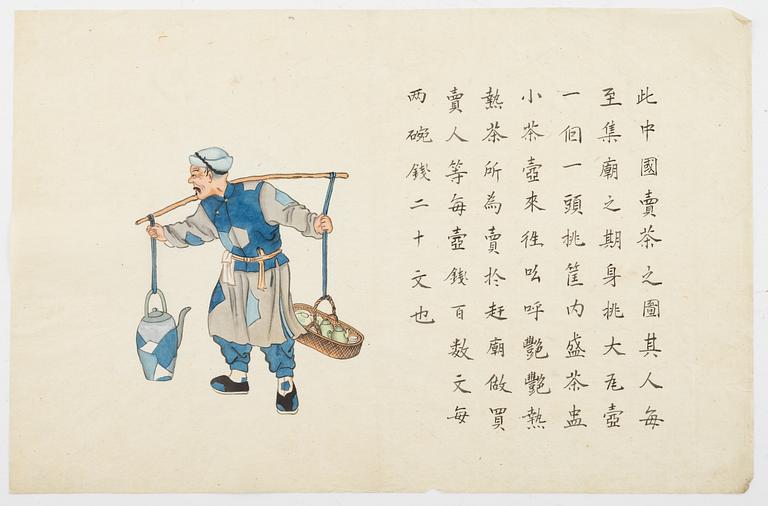 此中國賣茶之圖其人每
至集廟之期身挑大瓦壺
一個一頭挑筐内盛茶盅
小茶壺來徃吆呼艷艷熱
熱茶所為賣於赶廟做買
賣人等每壺錢百数文每
两碗錢二十文也